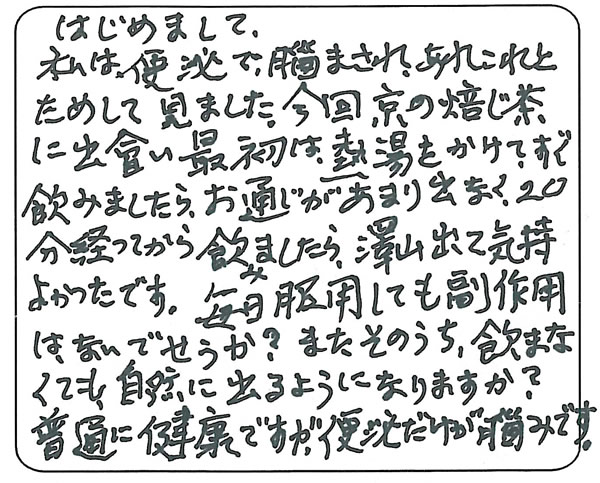 はじめまして、
私は、便泌で、腦まされ、あれこれと
ためして見ました。今回京の焙じ茶
に出會い最初は、熱湯をかけて、すぐ
飲みましたら、お通じがあまり出なく、20
分経ってから飲みましたら、澤山出て気持
よかったです。毎日服用しても副作用
は、ないでせうか？またそのうち、飲まな
くても、自然に出るようになりますか？
普通に健康ですが、便泌だけが腦みです。